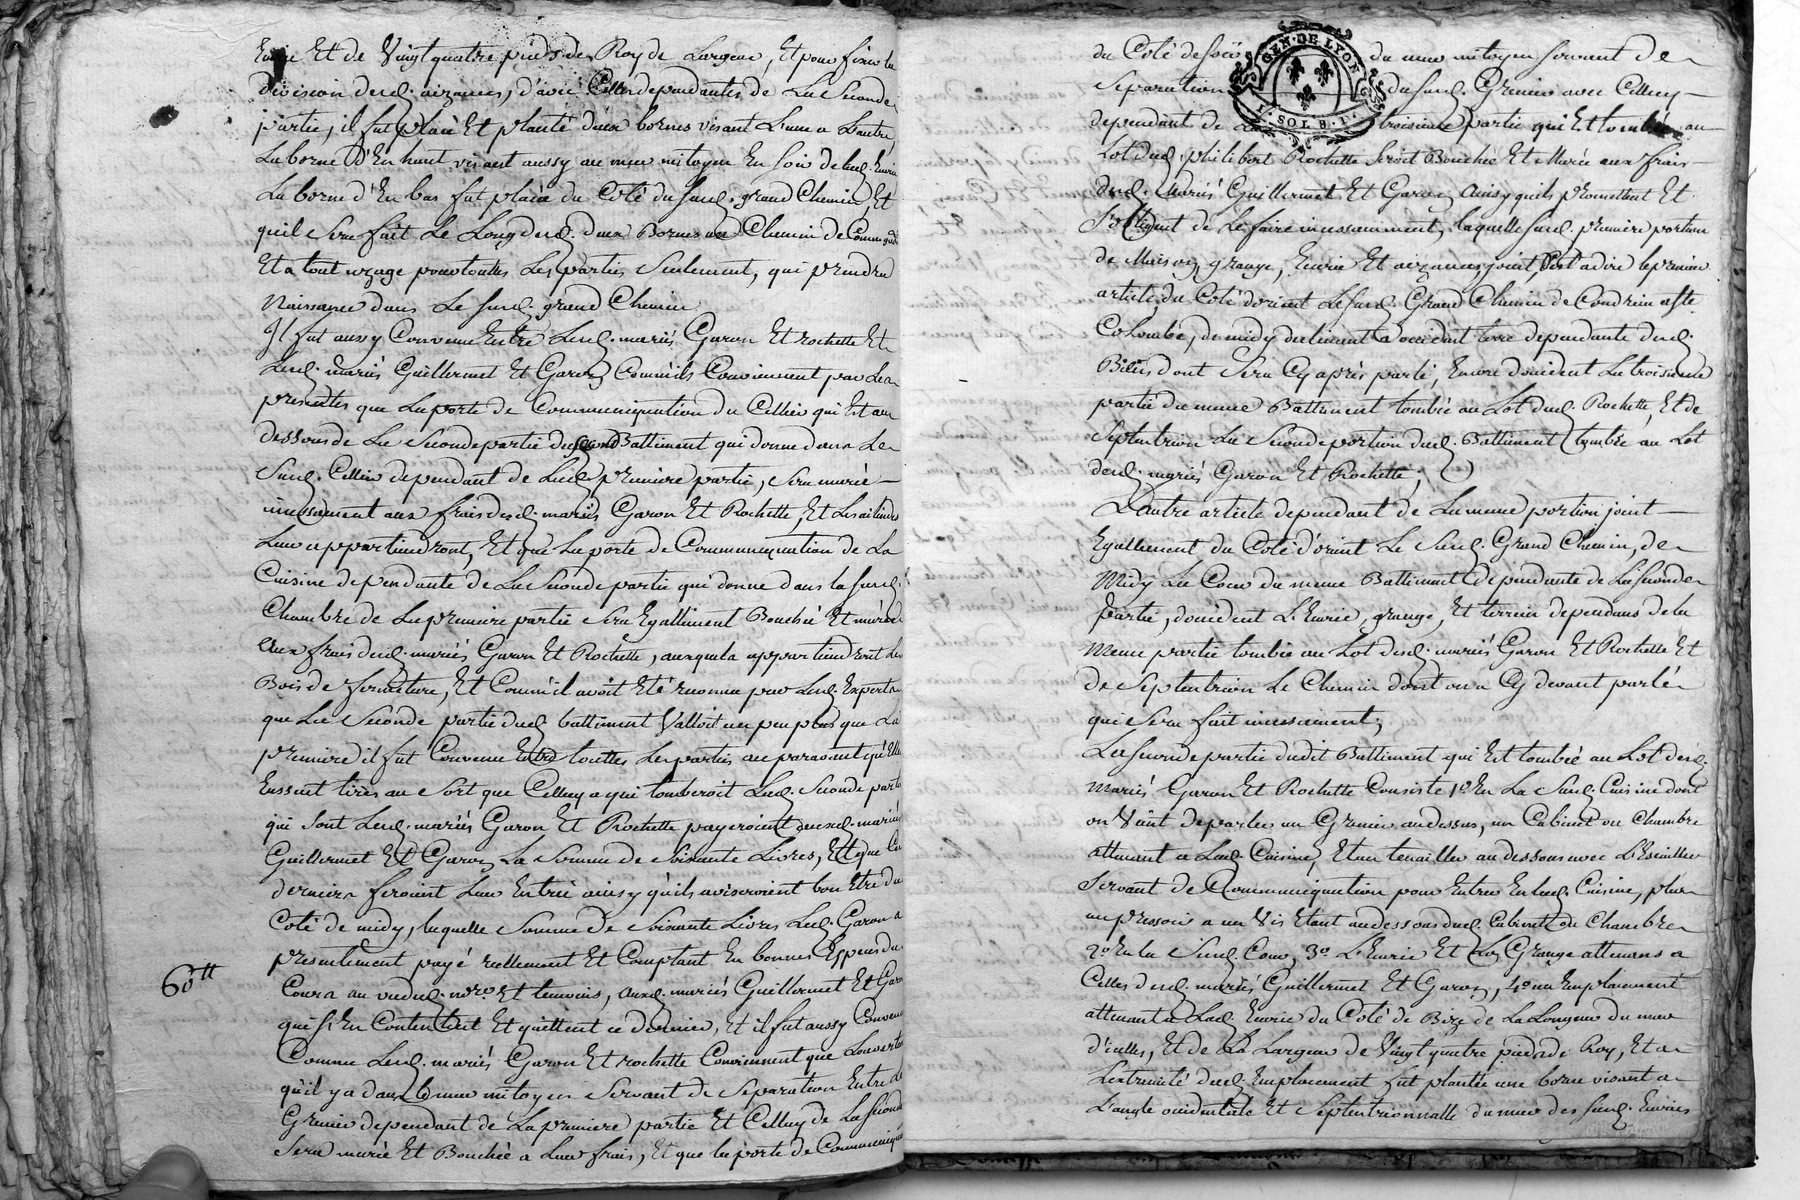 Ecurie Et de Vingt quatre pieds de Roy de Largeur, Et pour fixer la
division desd. aizances, d'avec Celles dependantes de La Seconde
partie, il fut placé Et planté deux bornes visant L'une a Lautre
La borne d'En haut visant aussy au mur mitoyen En soir de lad. Ecurie
La borne d'En bas fut placée du Coté du Susd. grand Chemin, Et
quil Sera fait Le Long desd. deux Bornes un Chemin de Commodité
Et a tout uzage pour touttes Les parties Seulement, qui prendra
Naissance dans Le Susd. grand Chemin
Il fut aussy Convenu Entre Lesd. mariés Garon Et Rochette Et
Lesd. mariés Guillermet Et Garon, Comm'ils Conviennent par Les
presentes que La porte de Communiquation du Cellier qui Est au
dessous de La Seconde partie dud. second Battiment qui donne dans Le
Susd. Cellier dependant de Lad. premiere partie, Sera murée
incessament aux frais desd. mariés Garon Et Rochette, Et Les
Leur appartiendront, Et que La porte de Communiquation de La
Cuisine dependante de La Seconde partie qui donne dans la Susd.
Chambre de La premiere partie Sera Egallement Bouchée Et murée
aux frais desd. mariés Garon Et Rochette, auxquels appartiendront Les
Bois de fermeture, Et Comm'il avoit Eté reconnu par Lesd. Experts
que La Seconde partie dud. battiment Valloit un peu plus que La
premiere il fut Convenu Entre touttes Les parties auparavant qu'Elles
Eussent tirés au Sort que Celluy a qui tomberoit Lad. Seconde partie
qui Sont Lesd. mariés Garon Et Rochette payeroient auxd. mariés
Guillermet Et Garon La Somme de Soisante Livres, Et que Ces
derniers feroient Leur Entrée ainsy qu'ils aviseroient bon Etre du
Coté de midy, laquelle Somme de Soisante Livres Led. Garon a
presentement payé reellement Et Comptant En bonnes Especes du
Cours au vu dud. nore. Et temoins, auxd. mariés Guillermet Et Garon
60tt
qui S'En Contentent Et quittent ce dernier, Et il fut aussy Convenu
Comme Lesd. mariés Garon Et rochette Conviennent que Louverture
qu'il y a dans Le mur mitoyen Servant de Separation Entre Le
Grenier dependant de La premiere partie Et Celluy de La Seconde
Sera murée Et Bouchée a Leur frais, Et que la porte de Communiquation
du Coté de Soir du mur mitoyen Servant de
Separation du Susd. Grenier avec Celluy
dependant de La troisieme partie qui Est tombée au
Lot dud. philibert Rochette Seroit Bouchée Et Murée aux frais
desd. Mariés Guillermet Et Garon, ainsy quils promettent Et
S'obligent de Le faire incessamment, laquelle Susd. premiere portion
de Maison, grange, Ecurie Et aizances, joint, C'est a dire le premier
article, du Coté d'orient Le Susd. Grand Chemin de Condrieu a Ste
Colombe, de midy declinant a occident terre dependante desd.
Biens dont Sera Cy après parlé, Encore d'occident La troisieme
partie du meme Battiment tombée au Lot dud. Rochette Et de
Septentrion La Seconde portion dud. Battiment tombée au Lot
desd. mariés Garon Et Rochette;
Lautre article dependant de La meme portion joint
Egallement du Coté d'orient Le Susd. Grand Chemin, de
Midy La Cour du meme Battiment dependante de La Seconde
partie, d'occident L'Ecurie, grange, Et terrein dependans de la
Meme partie tombée au Lot desd. mariés Garon Et Rochette Et
de Septentrion Le Chemin dont on a Cy devant parlé
qui Sera fait incessament;
La Seconde partie dudit Battiment qui Est tombée au Lot desd.
Mariés Garon Et Rochette Consiste 1o En La Susd. Cuisine dont
on Vient de parler un Grenier au dessus, un Cabinet ou Chambre
attenant a Lad. Cuisine, Et un tenailler au dessous avec L'Escallier
Servant de Communiquation pour Entrer En lad. Cuisine, plus
un pressoir a un Vis Etant au dessous dud. Cabinet ou Chambre
2o En la Susd. Cour, 3o L'Ecurie Et La Grange attenans a
Celles desd. mariés Guillermet Et Garon, 4o un Emplacement
attenant a Lad. Ecurie du Coté de Bize de La Longueur du mur
d'icelles, Et de La Largeur de Vingt quatre pieds de Roy, Et a
L'extremité dud. Emplacement fut plantée une borne visant a
L'angle occidentale Et Septentrionnalle du mur des Susd. Ecuries
GEN. DE LYON
1. SOL 8. D.